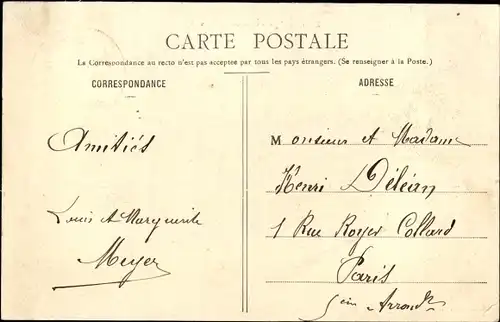 CARTE POSTALE
La Correspondance au recto n'est pas acceptée par tous les pays étrangers. (Se renseigner à la Poste.)
CORRESPONDANCE
Amitiés
Louis et Marguerite
Meyer
ADRESSE
Monsieur et Madame
Henri Déléan
1 Rue Royer Collard
Paris
5ème Arrondt